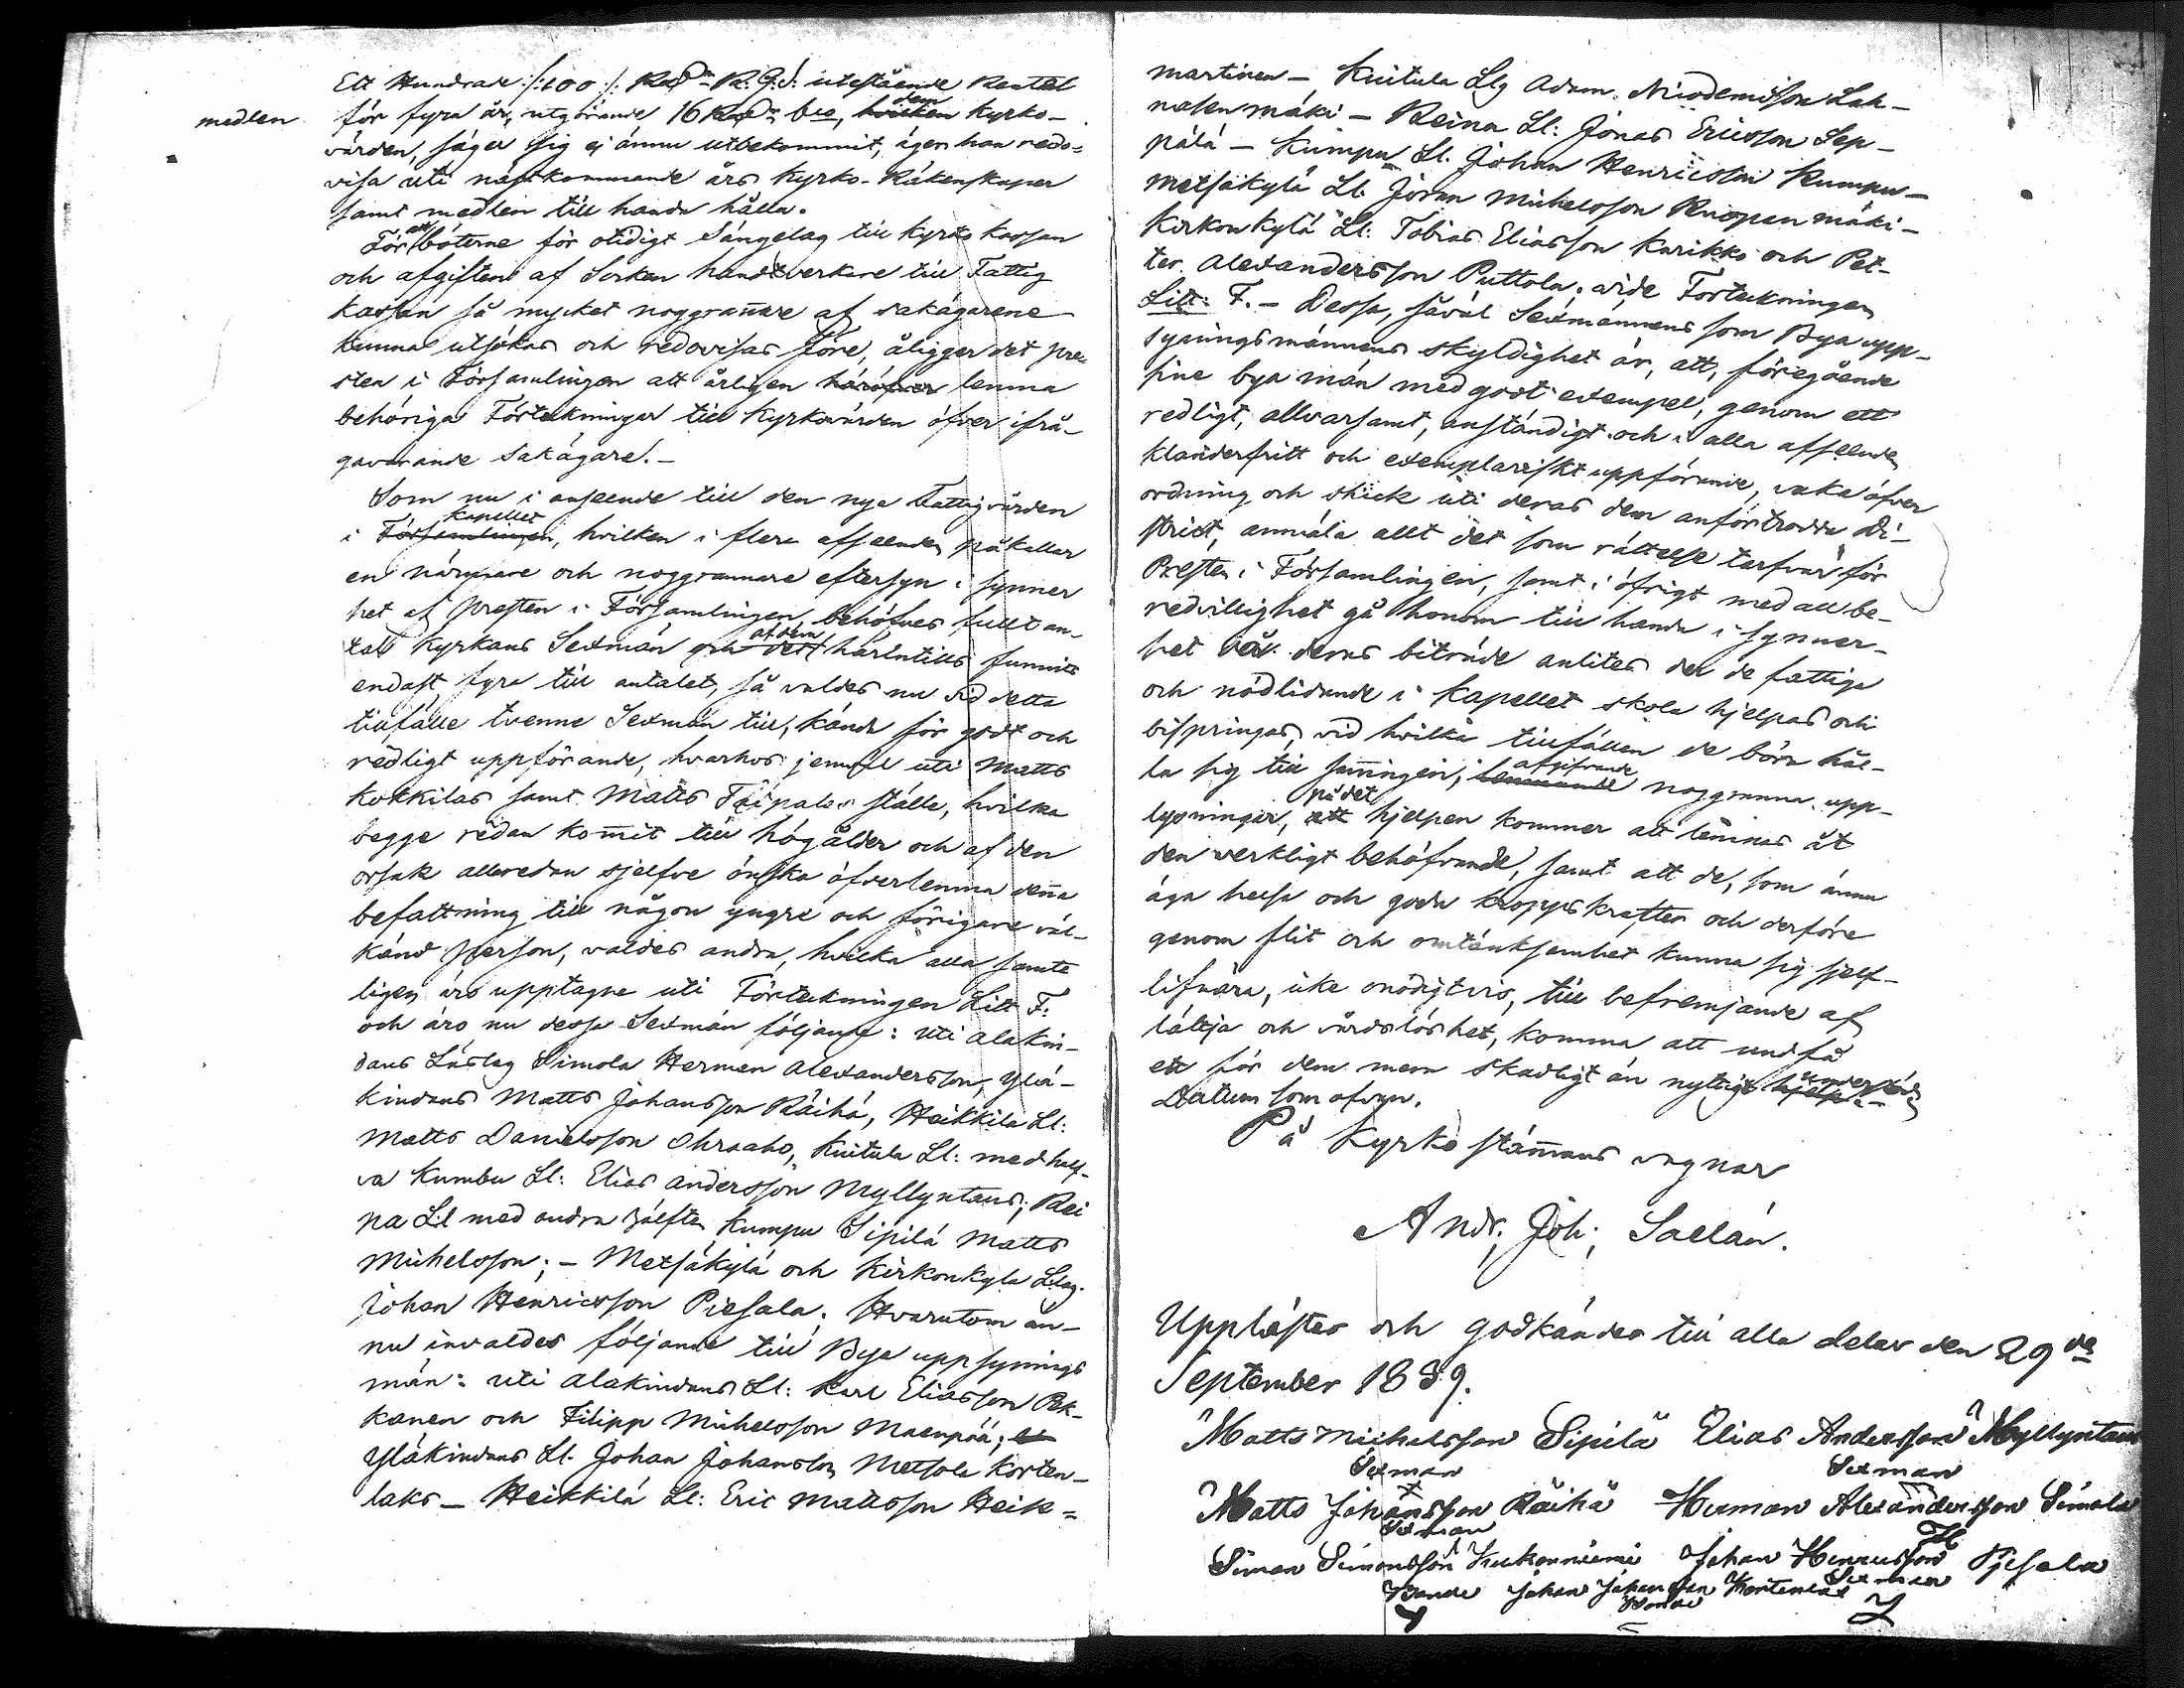 Ett Hundrade /:100:/ R:G:S: utestående Räntal
medlen för fyra år, utgörande 16 Rdr bco, hvilken dem Kyrko-
värden, säger sig ej ännu utbekommit, äger han redo-
visa uti nästkommande års Kyrko-Räkenskaper
samt medlen till handa hålla.
För böterne för otidigt Sängelag till Kyrko Kassan
och afgiften af Socken handtverkare till Fattig
Kassan så mycket noggrannare af sakägarene
kunna utsökas och redovisas före, åligger det pre
sten i Församlingen att årligen häröfver lemna
behöriga Förteckningar till Kyrkovärden öfver ifrå-
gavarande sakägare.-
Som nu i anseende till den nya Fattigvården
i Församlingen kapellet, hvilken i flere afseenden påkallar
en närmare och noggrannare eftersyn i synner
het af Presten i Församlingen, behöfves fullt an-
tal Kyrkans Sexmän och det af dem härintills funnits
endast fyra till antalet, så valdes nu vid detta
tillfälle tvenne Sexmän till, kände för godt och
redligt uppförande, hvarhos jemväl uti Matts
Kokkilas samt Matts ställe, hvilka
begge redan kom̄it till hög ålder och af den
orsak allaredan sjelfve önska öfverlemna den̄a
befattning till någon yngre och förigare väl-
känd person, valdes andra, hvilka alla samte
ligen äro upptagne uti Förteckningen Litt F:
och äro nu dessa Sexmän följande: uti Alakin-
daus Läslag Simola Herman Alexandersson, Ylä-
kindaus Matts Johansson Räihä, Heikkilä Ll:
Matts Danielsson Ohraaho, Kuitula Ll: med half-
va Kumbu Ll: Elias Andersson Myllyntaus; Rei
na Ll med andra hälften Kumpu Sipilä Matts
Michelsson; - Metsäkylä och Kirkonkylä Llag.
Johan Henricsson Piesala. Hvarutom än-
nu invaldes följande till Bya uppsynings
män: uti Alakindaus Ll: Karl Eliasson Pek-
kanen och Filipp Michelsson Maenpää;
Yläkindaus Ll. Johan Johansson Metsola Korten-
laks - Heikkilä Ll: Eric Mattsson Heik-
martinen - Kuitula Llg Adam Nicodemisson Lah-
nasenmäki - Reina Ll: Jonas Ericsson Sep-
pälä - Kumpu Ll. Johan Henricsson Kumpu -
Metsäkylä Ll. Jöran Michelsson Ruopanmäki -
Kirkonkylä Ll: Tobias Eliasson Karikko och Pet-
ter Alexandersson Puttola, vide Förteckningen
Litt: F. - Dessa, såväl Sexmännens som Bya upp-
syningsmännens skyldighet är, att, föregående
sine byamän med godt exempel, genom ett
redligt, allvarsamt, anständigt och i alla afseenden
klanderfritt och exemplariskt uppförande, vaka öfver
ordning och skick uti deras dem anförtrodda Di-
strict, anmäla allt det som rättelse tarfvar för
Presten i Församlingen, samt i öfrigt med all be-
redvillighet gå honom till handa i synner-
het når deras biträde anlites der de fattige
och nödlidande i Kapellet skola hjelpas och
bispringas, vid hvilka tillfällen de böra hål-
la sig till san̄ingen, lemnande afgifvande noggranna upp-
lysningar, att på det hjelpen kommer att lemnas åt
den verkligt behöfvande, samt att de, som ännu
äga helsa och goda kroppskrafter och derföre
genom flit och omtänksamhet kunna sig sjelf-
lifnära, icke onödigtvis, till befremjande af
lättja och vårdslöshet, komma att undfå
ett för dem mera skadligt än nyttigt hjelp- understöd
Datum som ofvan.
På Kyrko stäm̄ans vägnar
Andr: Joh: Saelán.
Upplästes och godkändes till alla delar den 29de
September 1839.
Matts Michelsson Sipilä Elias Andersson Myllyntaus
Sexman Sexman
Matts Johansson Räihä Herman Alexandersson Simola
Sexman
Simon Simonsson Kukonniemi Johan Henricsson Pjesala
Bonde Johan Johansson Kortenlax Sexman
Bonde